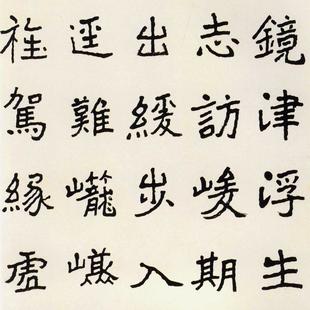 鏡津浮生
志訪峻期
出緩步入
逕難巃
旌駕緣虛